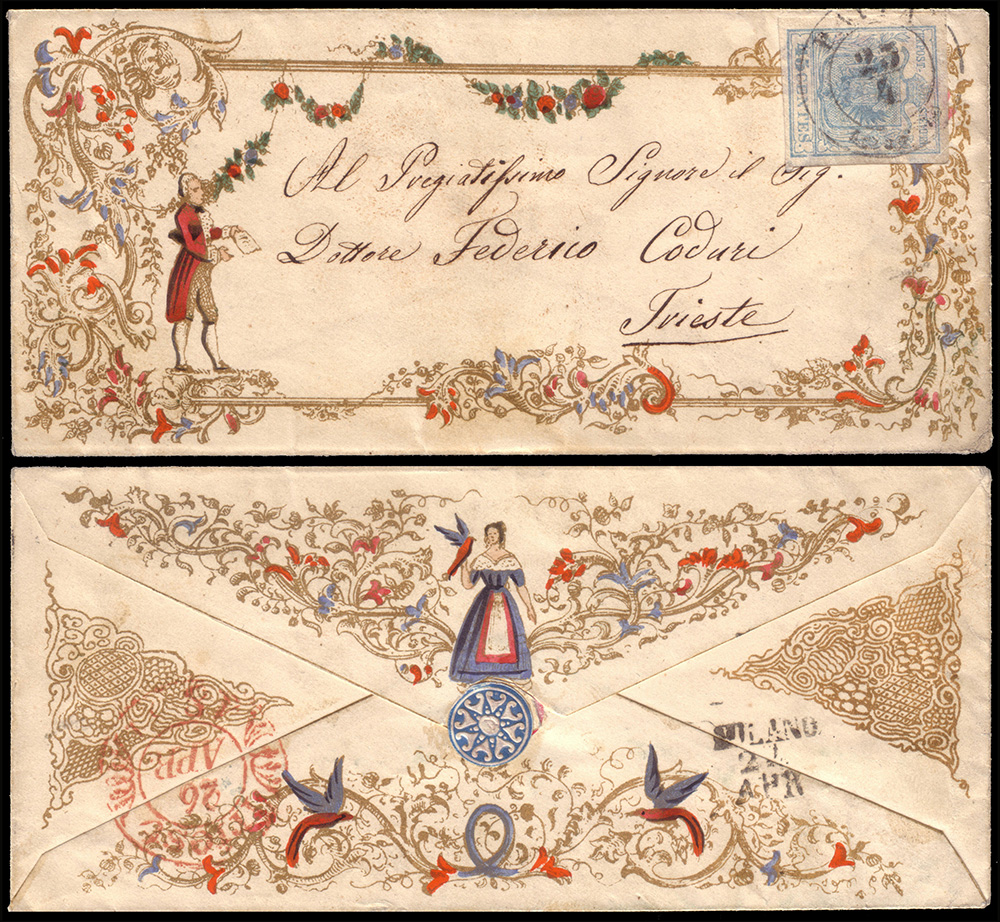 Al Pregiatissimo Signore il Sig.
Dottore Federico Coduri
Trieste
23
4
CENTES.
MILANO
APR
26
APR